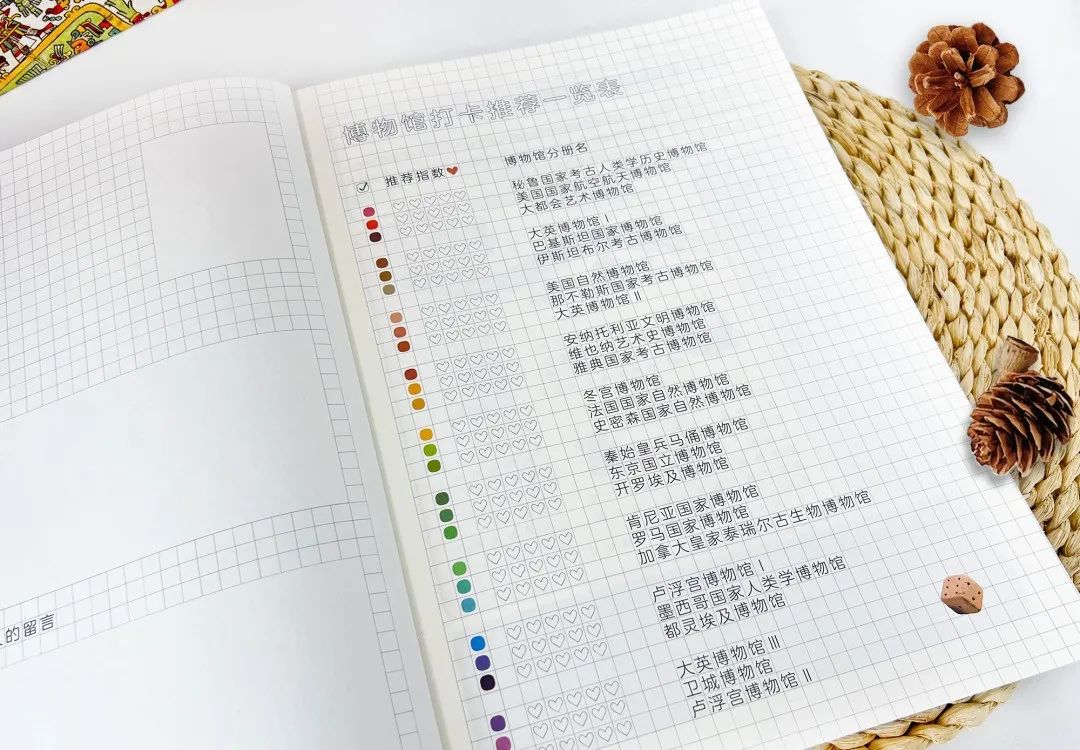 人的留言
博物馆打卡推荐一览表
推荐指数
博物馆分册名
秘鲁国家考古人类学历史博物馆
美国国家航空航天博物馆
大都会艺术博物馆
大英博物馆Ⅰ
巴基斯坦国家博物馆
伊斯坦布尔考古博物馆
美国自然博物馆
那不勒斯国家考古博物馆
大英博物馆Ⅱ
安纳托利亚文明博物馆
维也纳艺术史博物馆
雅典国家考古博物馆
冬宫博物馆
法国国家自然博物馆
史密森国家自然博物馆
秦始皇兵马俑博物馆
东京国立博物馆
开罗埃及博物馆
肯尼亚国家博物馆
罗马国家博物馆
加拿大皇家泰瑞尔古生物博物馆
卢浮宫博物馆Ⅰ
墨西哥国家人类学博物馆
都灵埃及博物馆
大英博物馆Ⅲ
卫城博物馆
卢浮宫博物馆Ⅱ